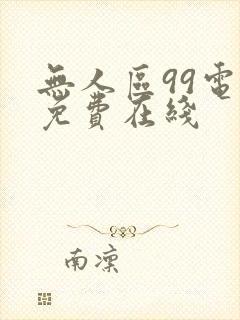 無人區99電
免費在綫
南凜